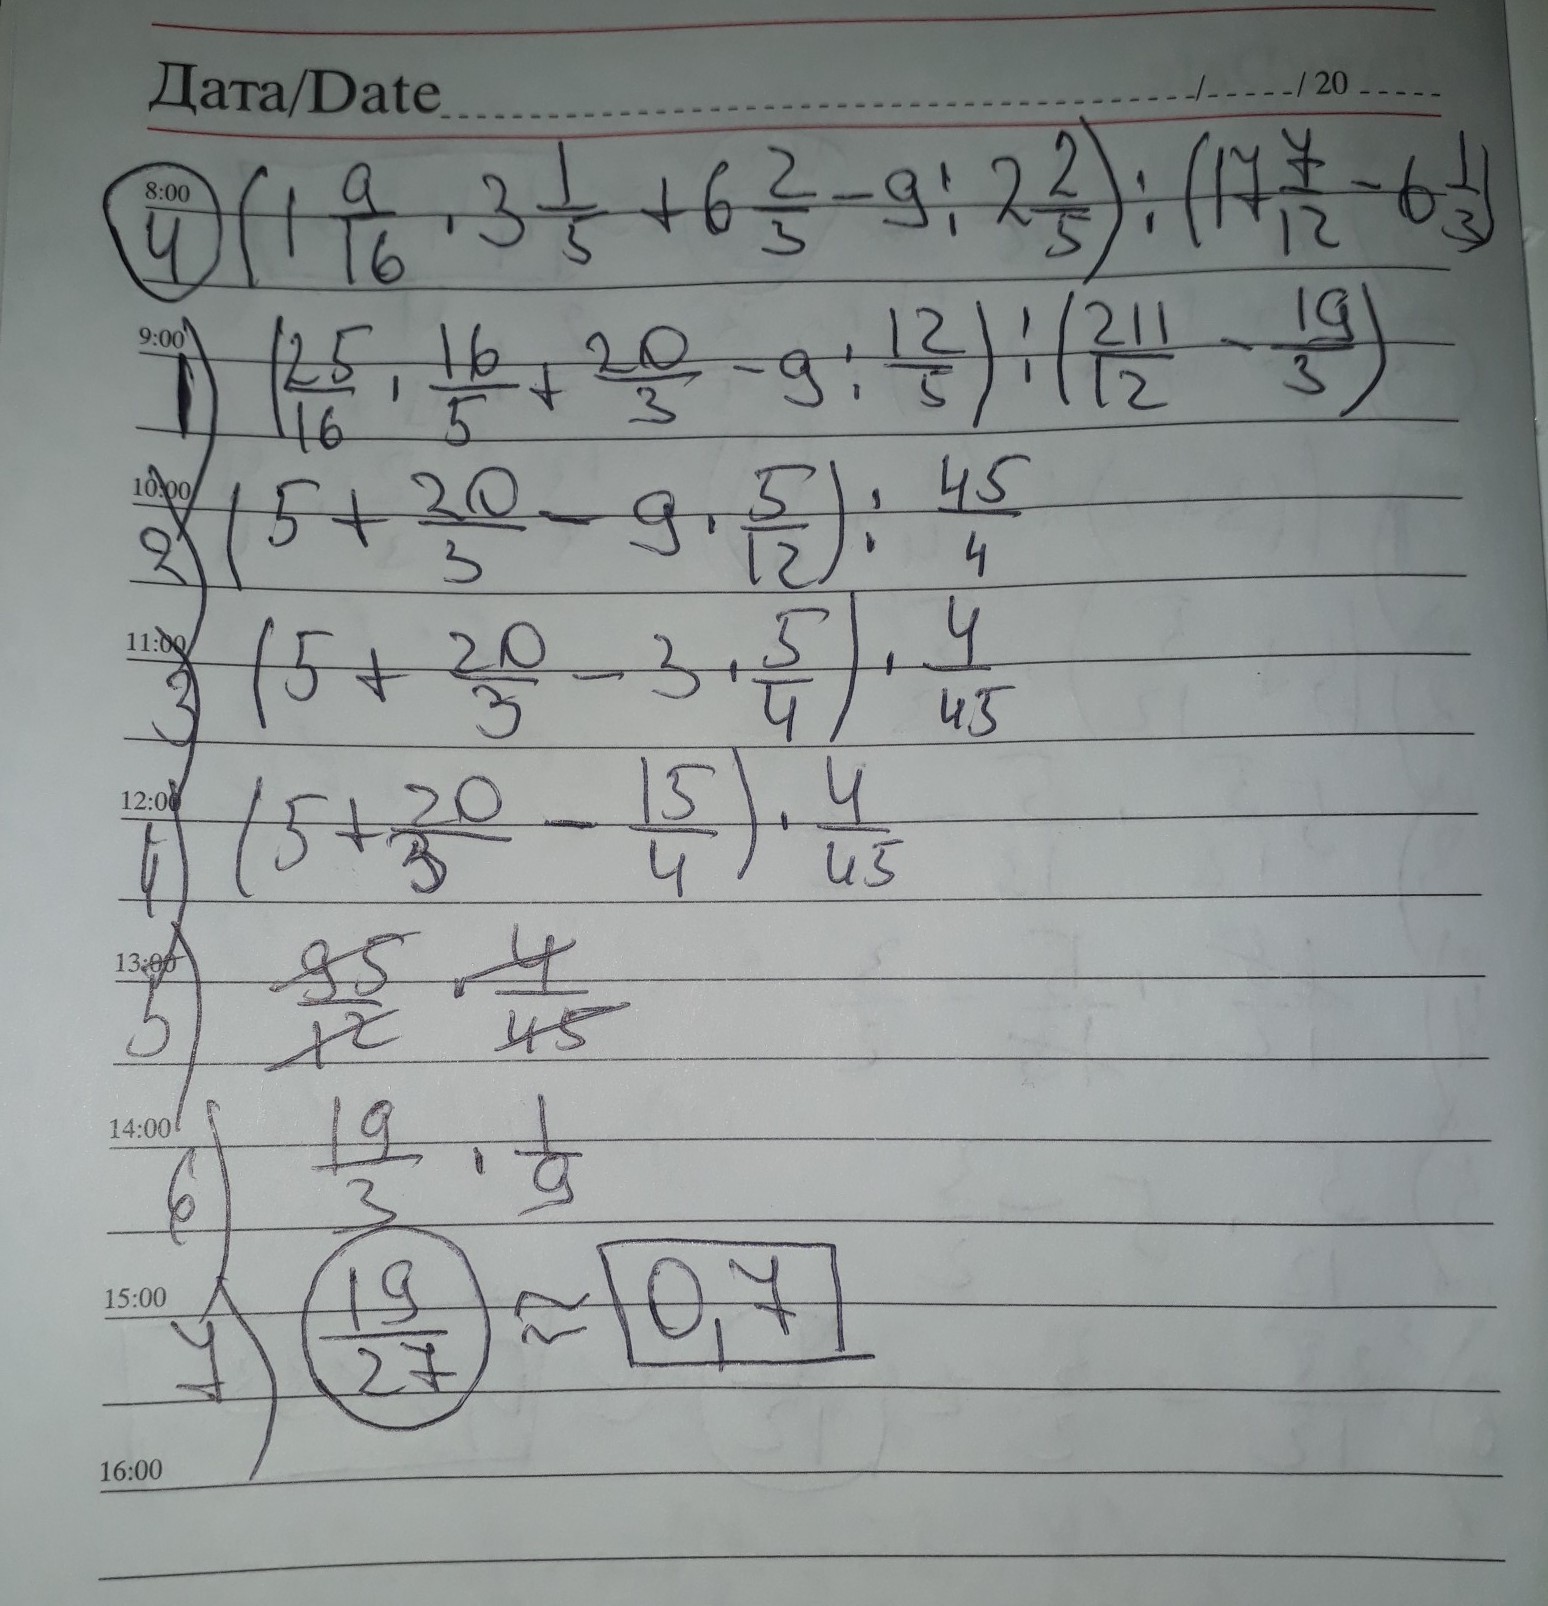 Дата/Date / / 20
8:00
4 (1 9/16 · 3 1/5 + 6 2/3 - 9 : 2 2/5) : (17 7/12 - 6 1/3)
9:00
1) (25/16 · 16/5 + 20/3 - 9 : 12/5) : (211/12 - 19/3)
10:00
2) (5 + 20/3 - 9 · 5/12) : 45/4
11:00
3) (5 + 20/3 - 3 · 5/4) · 4/45
12:00
4) (5 + 20/3 - 15/4) · 4/45
13:00
5) 95/12 · 4/45
14:00
6) 19/3 · 1/9
15:00
7) 19/27 ≈ 0,7
16:00